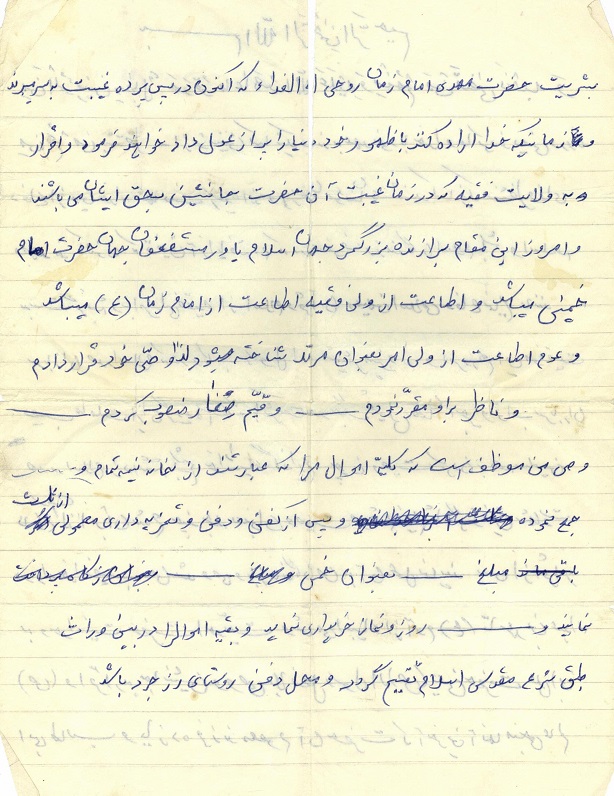 بشریت حضرت مهدی امام زمان روحی له الفداء که اکنون در پس پرده غیبت به سر میبرند
و زمانیکه خدا اراده کند با ظهور خود دنیا را پر از عدل و داد خواهد فرمود و اقرار
به ولایت فقیه که در زمان غیبت آن حضرت جانشین بحق ایشان می باشند
و امروز این مقام برازنده بزرگمرد جهان اسلام یاور مستضعفان جهان حضرت امام
خمینی میباشد و اطاعت از ولی فقیه اطاعت از امام زمان (ع) میباشد
و عدم اطاعت از ولی امر بعنوان مرتد شناخته میشود لذا وصّی خود قرار دادم
و ناظر بر او مقرّر نمودم و قیّم صغار منصوب کردم
وصی من موظف است که کلیّه اموال مرا که عبارتند از خانه نیمه تمام و
جمع نموده و پس از کفن و دفن و تعزیه داری معمولی از ثلث
باقی مانده مبلغ بعنوان خمس
نمایند و روزه و نماز خریداری نماید و بقیه اموالم را در بین وراث
طبق شرع مقدس اسلام تقسیم گردد و محل دفن روستای رزجرد باشد